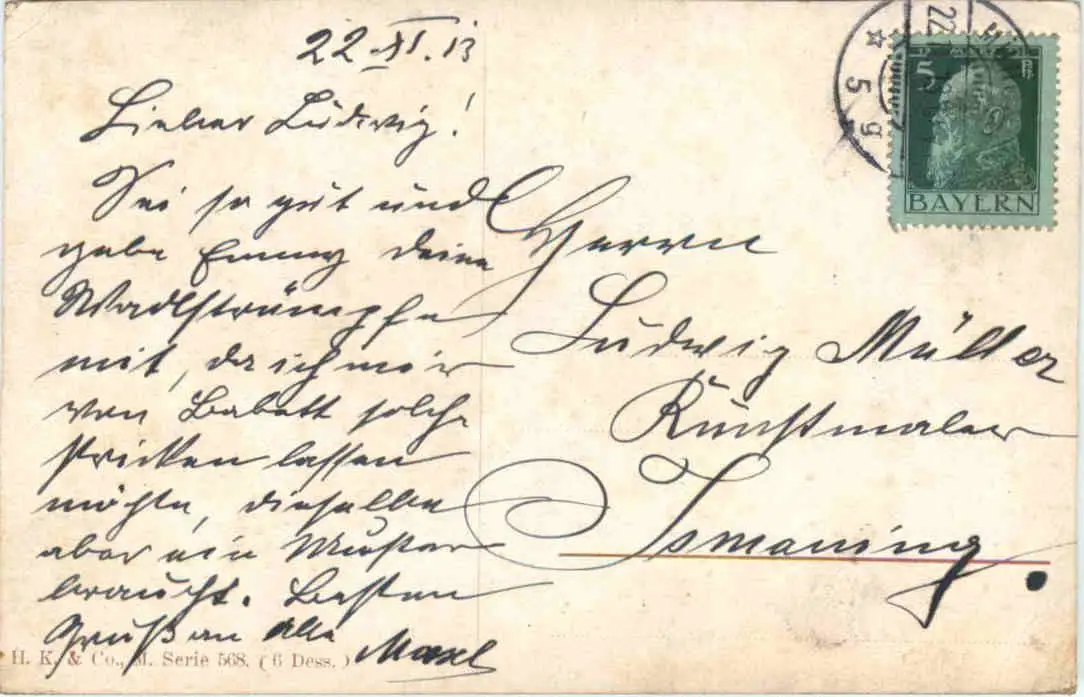 22.XI.13
Lieber Ludwig!
Sei so gut und
gebe Emmy deine
Wadlstrümpfe
mit, da ich mir
von Babett solche
stricken lassen
möchte, dieselbe
aber ein Muster
braucht. Besten
Gruß an Alle
Herrn
Ludwig Müller
Kunstmaler
Ismaning.
5 BAYERN
22
5 g
H. K. & Co., M. Serie 568. (6 Dess.)